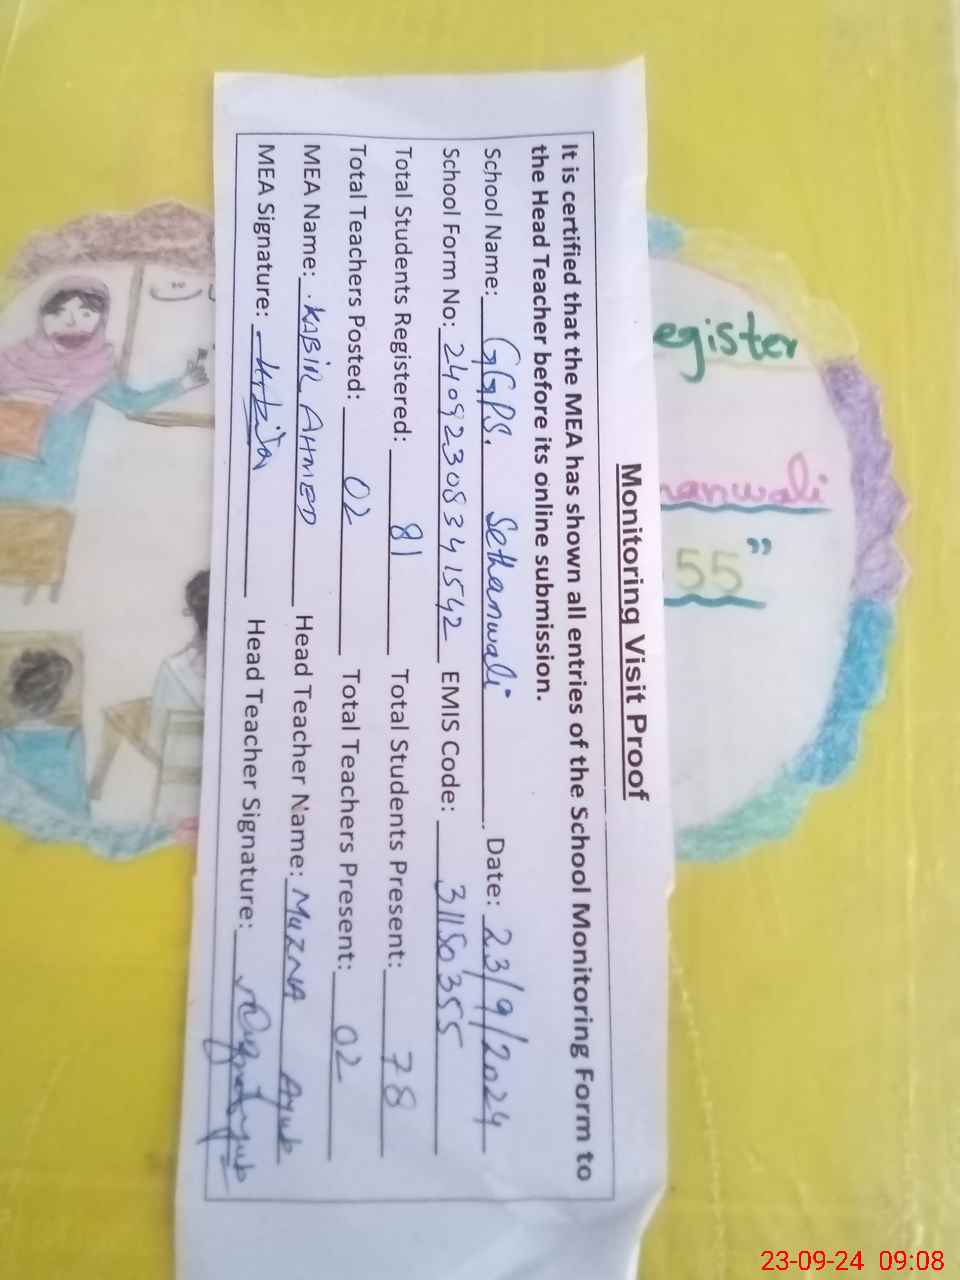 Monitoring Visit Proof
It is certified that the MEA has shown all entries of the School Monitoring Form to
the Head Teacher before its online submission.
School Name: GGPS. Sethanwali Date: 23/9/2024
School Form No: 24092308341542 EMIS Code: 31150355
Total Students Registered: 81 Total Students Present: 78
Total Teachers Posted: 02 Total Teachers Present: 02
MEA Name: KABIR AHMED Head Teacher Name: MUZNA Ayub
MEA Signature: Head Teacher Signature:
egister
hanwali
55"
23-09-24 09:08